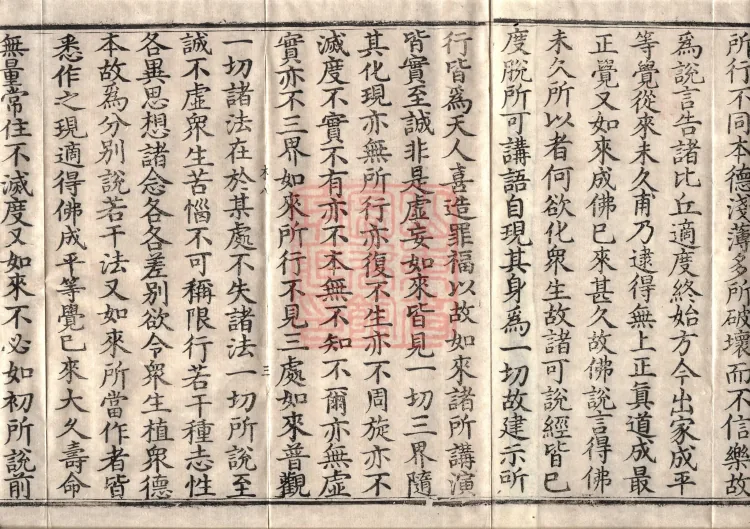 所行不同本德淺薄多所破壞而不信樂故
爲說言告諸比丘適度終始方今出家成平
等覺從來未久甫乃逮得無上正真道成最
正覺又如來成佛已來甚久故佛說言得佛
未久所以者何欲化衆生故諸可說經皆已
度脫所可講語自現其身為一切故建示所
行皆爲天人喜造罪福以故如來諸所講演
皆實至誠非是虛妄如來皆見一切三界隨
其化現亦無所行亦復不生亦不周旋亦不
滅度不實不有亦不本無不知不爾亦無虛
實亦不三界如來所行不見三處如來普觀
一切諸法在於某處不失諸法一切所說至
誠不虛衆生苦惱不可稱限行若干種志性
各異思想諸念各各差別欲令衆生植衆德
本故爲分別說若干法又如來所當作者皆
悉作之現適得佛成平等覺已來大久壽命
無量常住不滅度又如來不必如初所說前